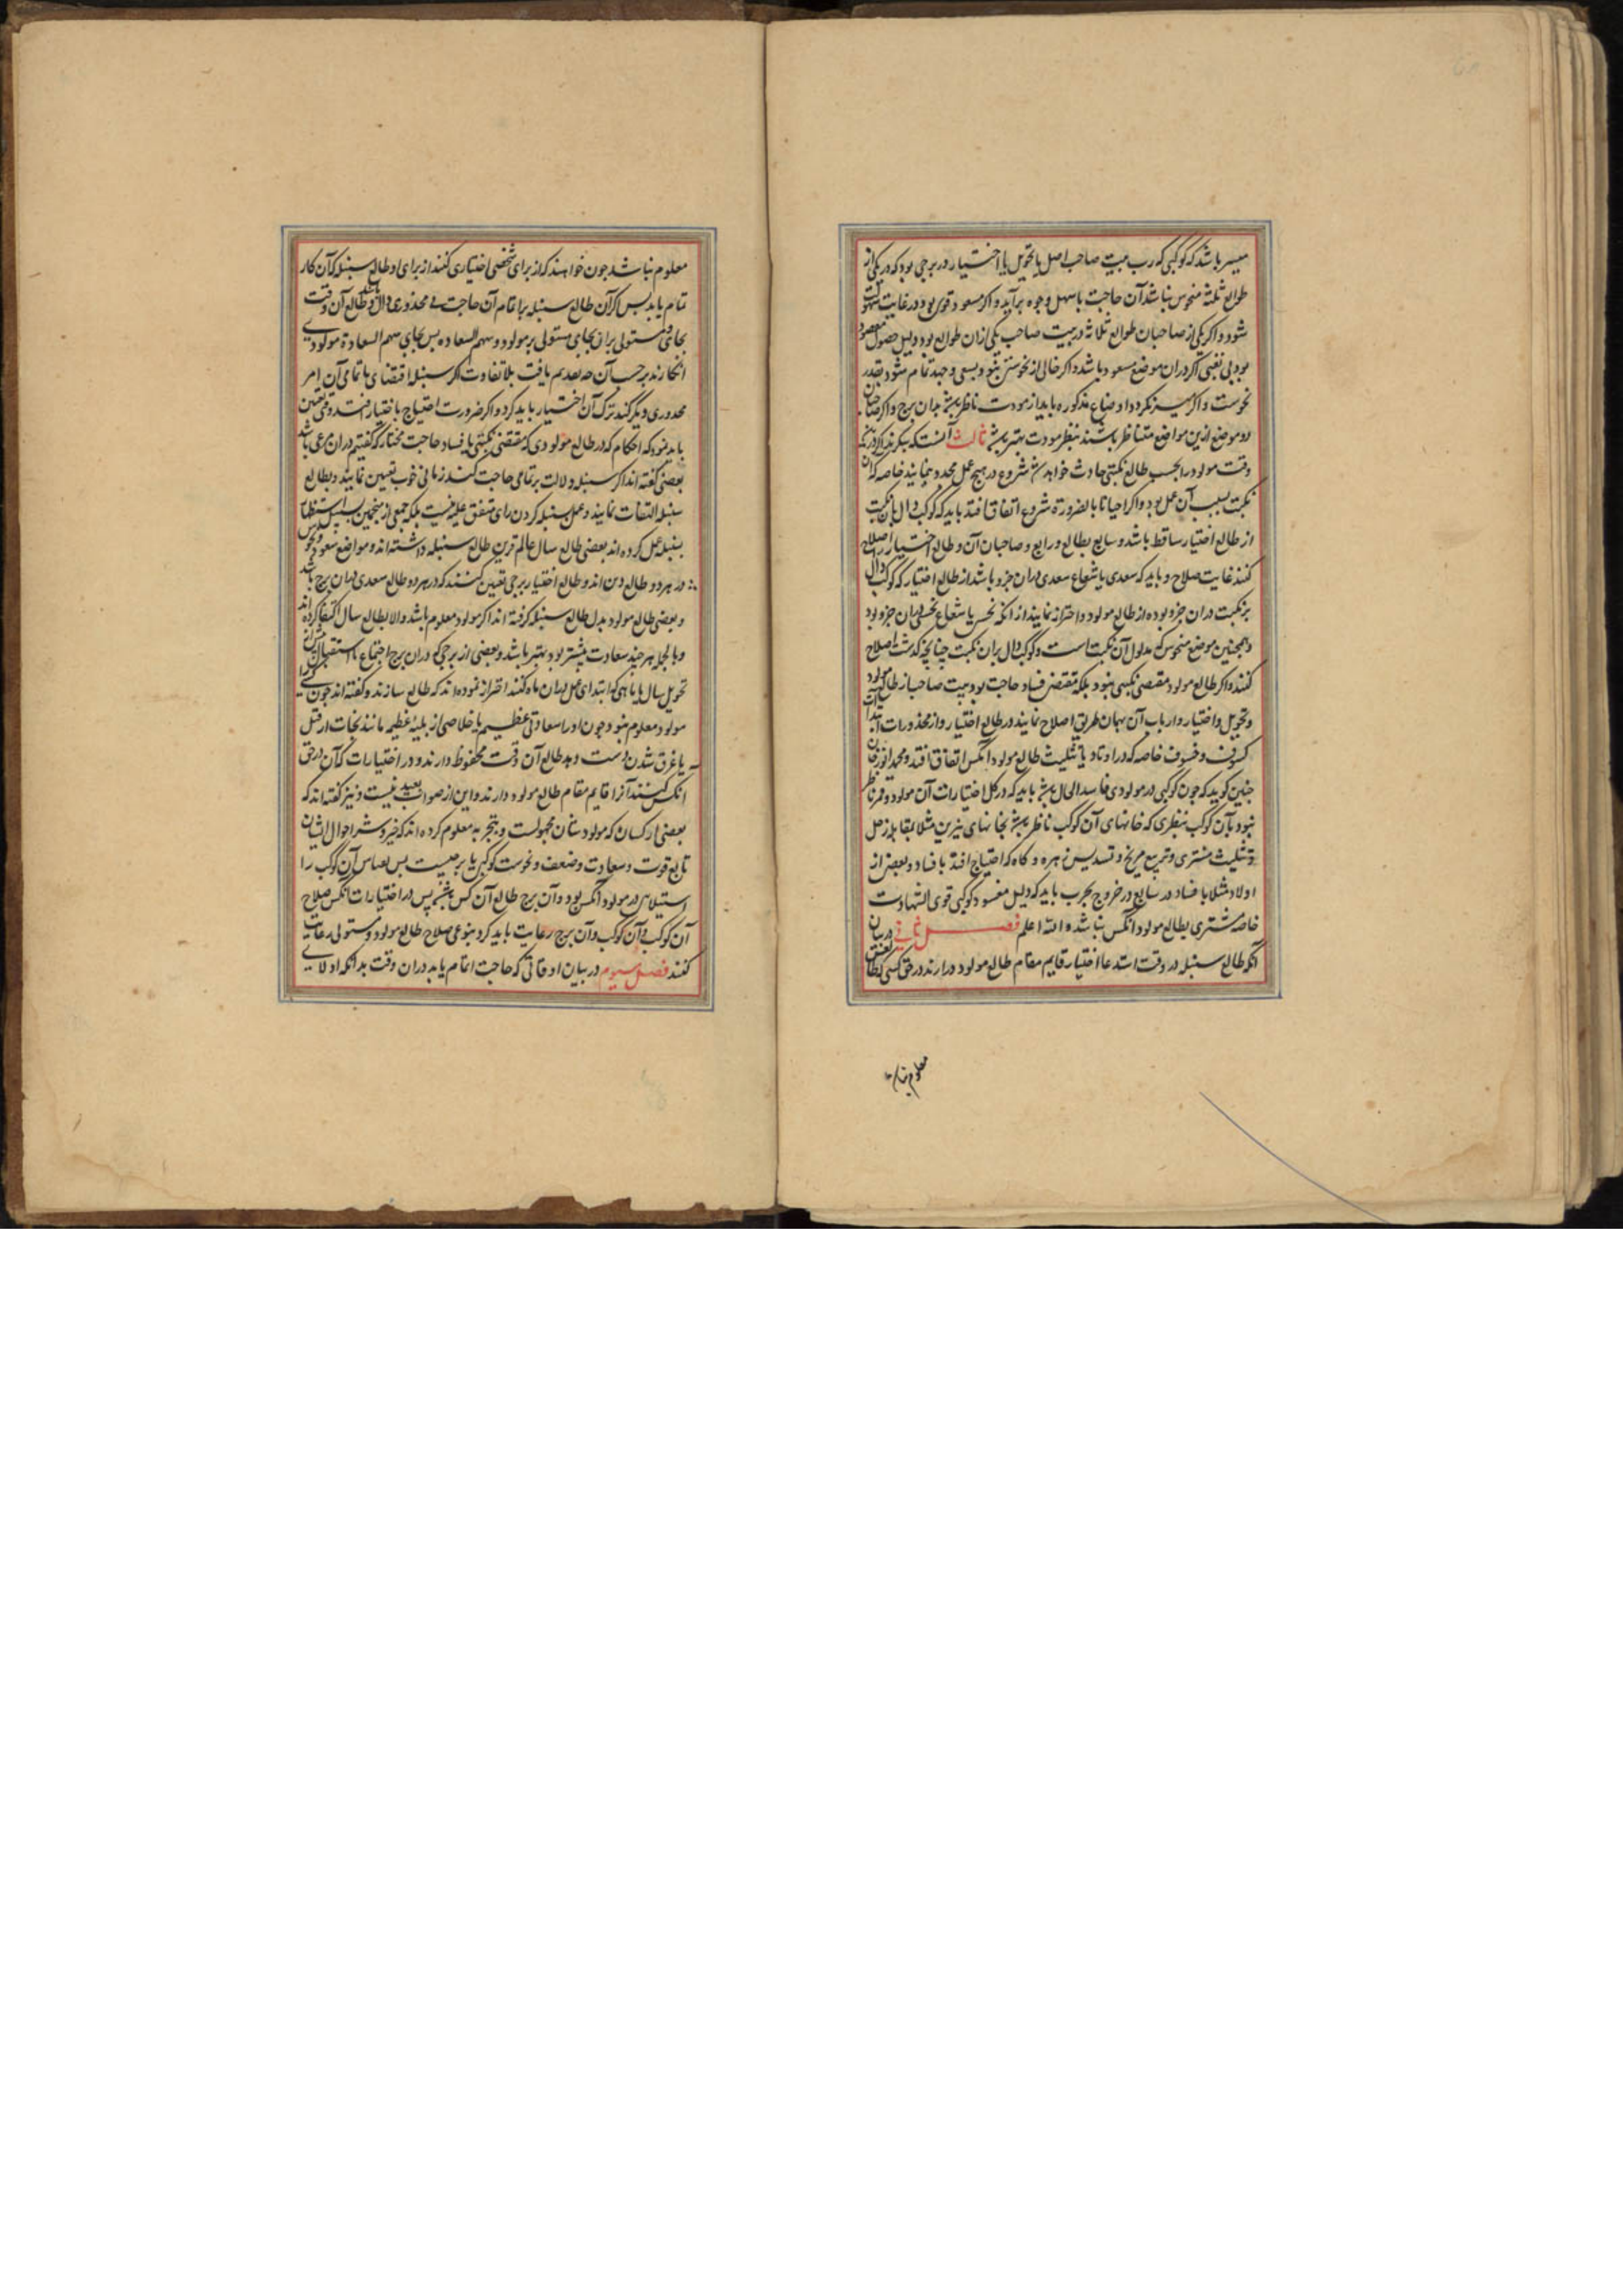 میسر باشد که کوکبی که رب بیت صاحب اصل یا تحویل یا اختیار در برجی بود که در یکی از
طوالع ثلثه منحوس نباشد آن حاجت باسهل وجوه برآید و اکر مسعود و قوی بود در غایت سهولت
شود و اکر یکی از صاحبان طوالع ثلاثه در بیت صاحب یکی از ان طوالع بود دلیل حصول مقصود
بود بی تعبی اکر دران موضع مسعود باشد و اکر خالی از نحوستی نبود بسعی و جهد تمام شود بقدر
نحوست و اکر میسر نکردد اوضاع مذکوره باید از مودت ناظر باشد بدان برج و اکر صاحبان
دو موضع ازین مواضع متناظر باشند بنظر مودت بهتر باشد ثالث آنست که بنکرند اکر در آن
وقت مولود را بحسب طالع نکبتی حادث خواهد شد شروع در هیچ عمل محدود ننمایند خاصه که ان
نکبت بسبب آن عمل بود و اکر احیانا بالضرورة شروع اتفاق افتد باید که کوکب دال بان نکبت
از طالع اختیار ساقط باشد و سابع بطالع و رابع و صاحبان آن و طالع اختیار را اصلاح
کنند غایت صلاح و باید که سعدی یا شعاع سعدی دران جزو باشد از طالع اختیار که کوکب دال
بر نکبت دران جزو بوده از طالع مولود و احتراز نمایند از انکه نحس یا شعاع نحس دران جزو بود
و همچنین موضع منحوس که مدلول آن نکبت است و کوکب دال بران نکبت چنانچه کذشت اصلاح
کنند و اکر طالع مولود مقتضی نکبتی نبود بلکه مقتضی فساد حاجت بود بیت صاحب از طالع مولود
و تحویل و اختیار و ارباب آن بهمان طریق اصلاح نمایند در طالع اختیار و از محذورات
کسوف و خسوف خاصه که در اوتاد یا تثلیث طالع مولود انکس اتفاق افتد و محمد
چنین کوید که چون کوکبی در مولودی فاسد الحال باشد باید که در کل اختیارات آن مولود قمر ناظر
نبود بآن کوکب بنظری که خانهای آن کوکب ناظر باشد بخانهای نیرین مثلا بمقابله زحل
و تثلیث مشتری و تربیع مریخ و تسدیس زهره و کاه که احتیاج افتد بافساد بعضی از
اولاد مثلا بافساد در سابع در خروج بحرب باید که دلیل مفسود کوکبی قوی الشهادت
خاصه مشتری بطالع مولود انکس نباشد و الله اعلم فصل ثانی در بیان
آنکه طالع سنبله در وقت استدعا اختیار قایم مقام طالع مولود دارند در حق کسی که طالع
معلوم نباشد
معلوم نباشد چون خواهند که از برای شخصی اختیاری کنند از برای او طالع سنبله که آن کار
تمام یابد پس اکر آن طالع سنبله بر اتمام آن حاجت بی محذوری دال باشد و طالع آن وقت
بجای و مستولی بر ان بجای مستولی بر مولود و سهم السعاده پس بجای سهم السعادة مولودی
انکارند بر حسب آن تقدیم یافت بلا تفاوت اکر سنبله اقتضای ناتمامی آن امر
محذوری دیکر کند ترک آن اختیار باید کرد و اکر ضرورت احتیاج باختیار افتد وقتی تعیین
باید نمود که احکام که در طالع مولودی که مقتضی نکبتی یا فساد حاجت مختار که کفتیم دران مرعی باشد
بعضی کفته اند اکر سنبله دلالت بر تمامی حاجت کند زمانی خوب تعیین نمایند و بطالع
سنبله التفات نمایند و عمل سنبله کردن رای متفق علیه نیست بلکه جمعی از منجمین
بسنبله عمل کرده اند بعضی طالع سال عالم قرین طالع سنبله داشته اند و مواضع سعود و نحوس
در هر دو طالع دیده اند و طالع اختیار برجی تعیین کنند که در هر دو طالع سعدی دران برج باشد
و بعضی طالع مولود بدل طالع سنبله کرفته اند اکر مولود معلوم باشد و الا بطالع سال اکتفا کرده اند
و بالجمله هر چند سعادت بیشتر بود بهتر باشد و بعضی از برجی که دران برج اجتماع یا استقبال
تحویل سال یا ماهی که ابتدای عمل دران ماه کنند احتراز نموده اند که طالع سازند و کفته اند چون کسی را
مولود معلوم نبود چون او را سعادتی عظیم یا خلاصی از بلیهٔ عظیم مانند نجات از قتل
یا غرق شدن دست دهد طالع آن وقت محفوظ دارند و در اختیارات که آن در حق
انکس کنند آنرا قایم مقام طالع مولود دارند و این از صواب بعید نیست و نیز کفته اند که
بعضی از کسان که مولودشان مجهولست و بتجربه معلوم کرده اند که خیر و شر احوال ایشان
تابع قوت و سعادت و ضعف و نحوست کوکبی یا برجیست پس آن کوکب را
استیلا در مولود انکس بود و آن برج طالع آن کس باشد پس در اختیارات انکس صلاح
آن کوکب و آن برج رعایت باید کرد بنوعی صلاح طالع مولود و مستولی رعایت
کنند فصل سیوم در بیان اوقاتی که حاجت اتمام یابد دران وقت بدانکه اولا